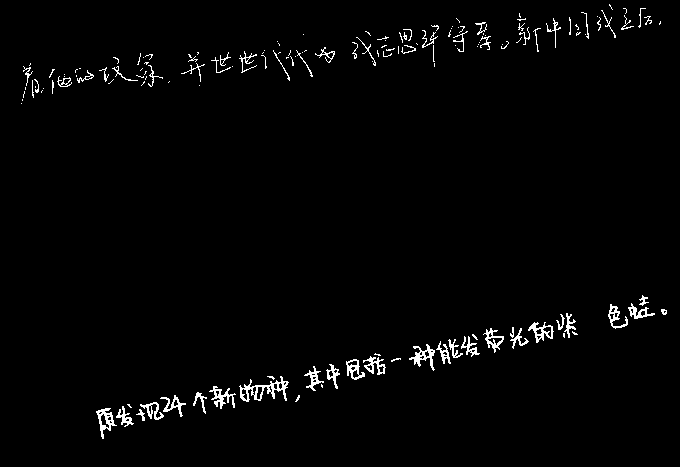 着他的坟冢,并世世代代为戏志思军守墓。新中国成立后,
原发现24个新物种,其中包括一种能发荧光的紫色蛙。